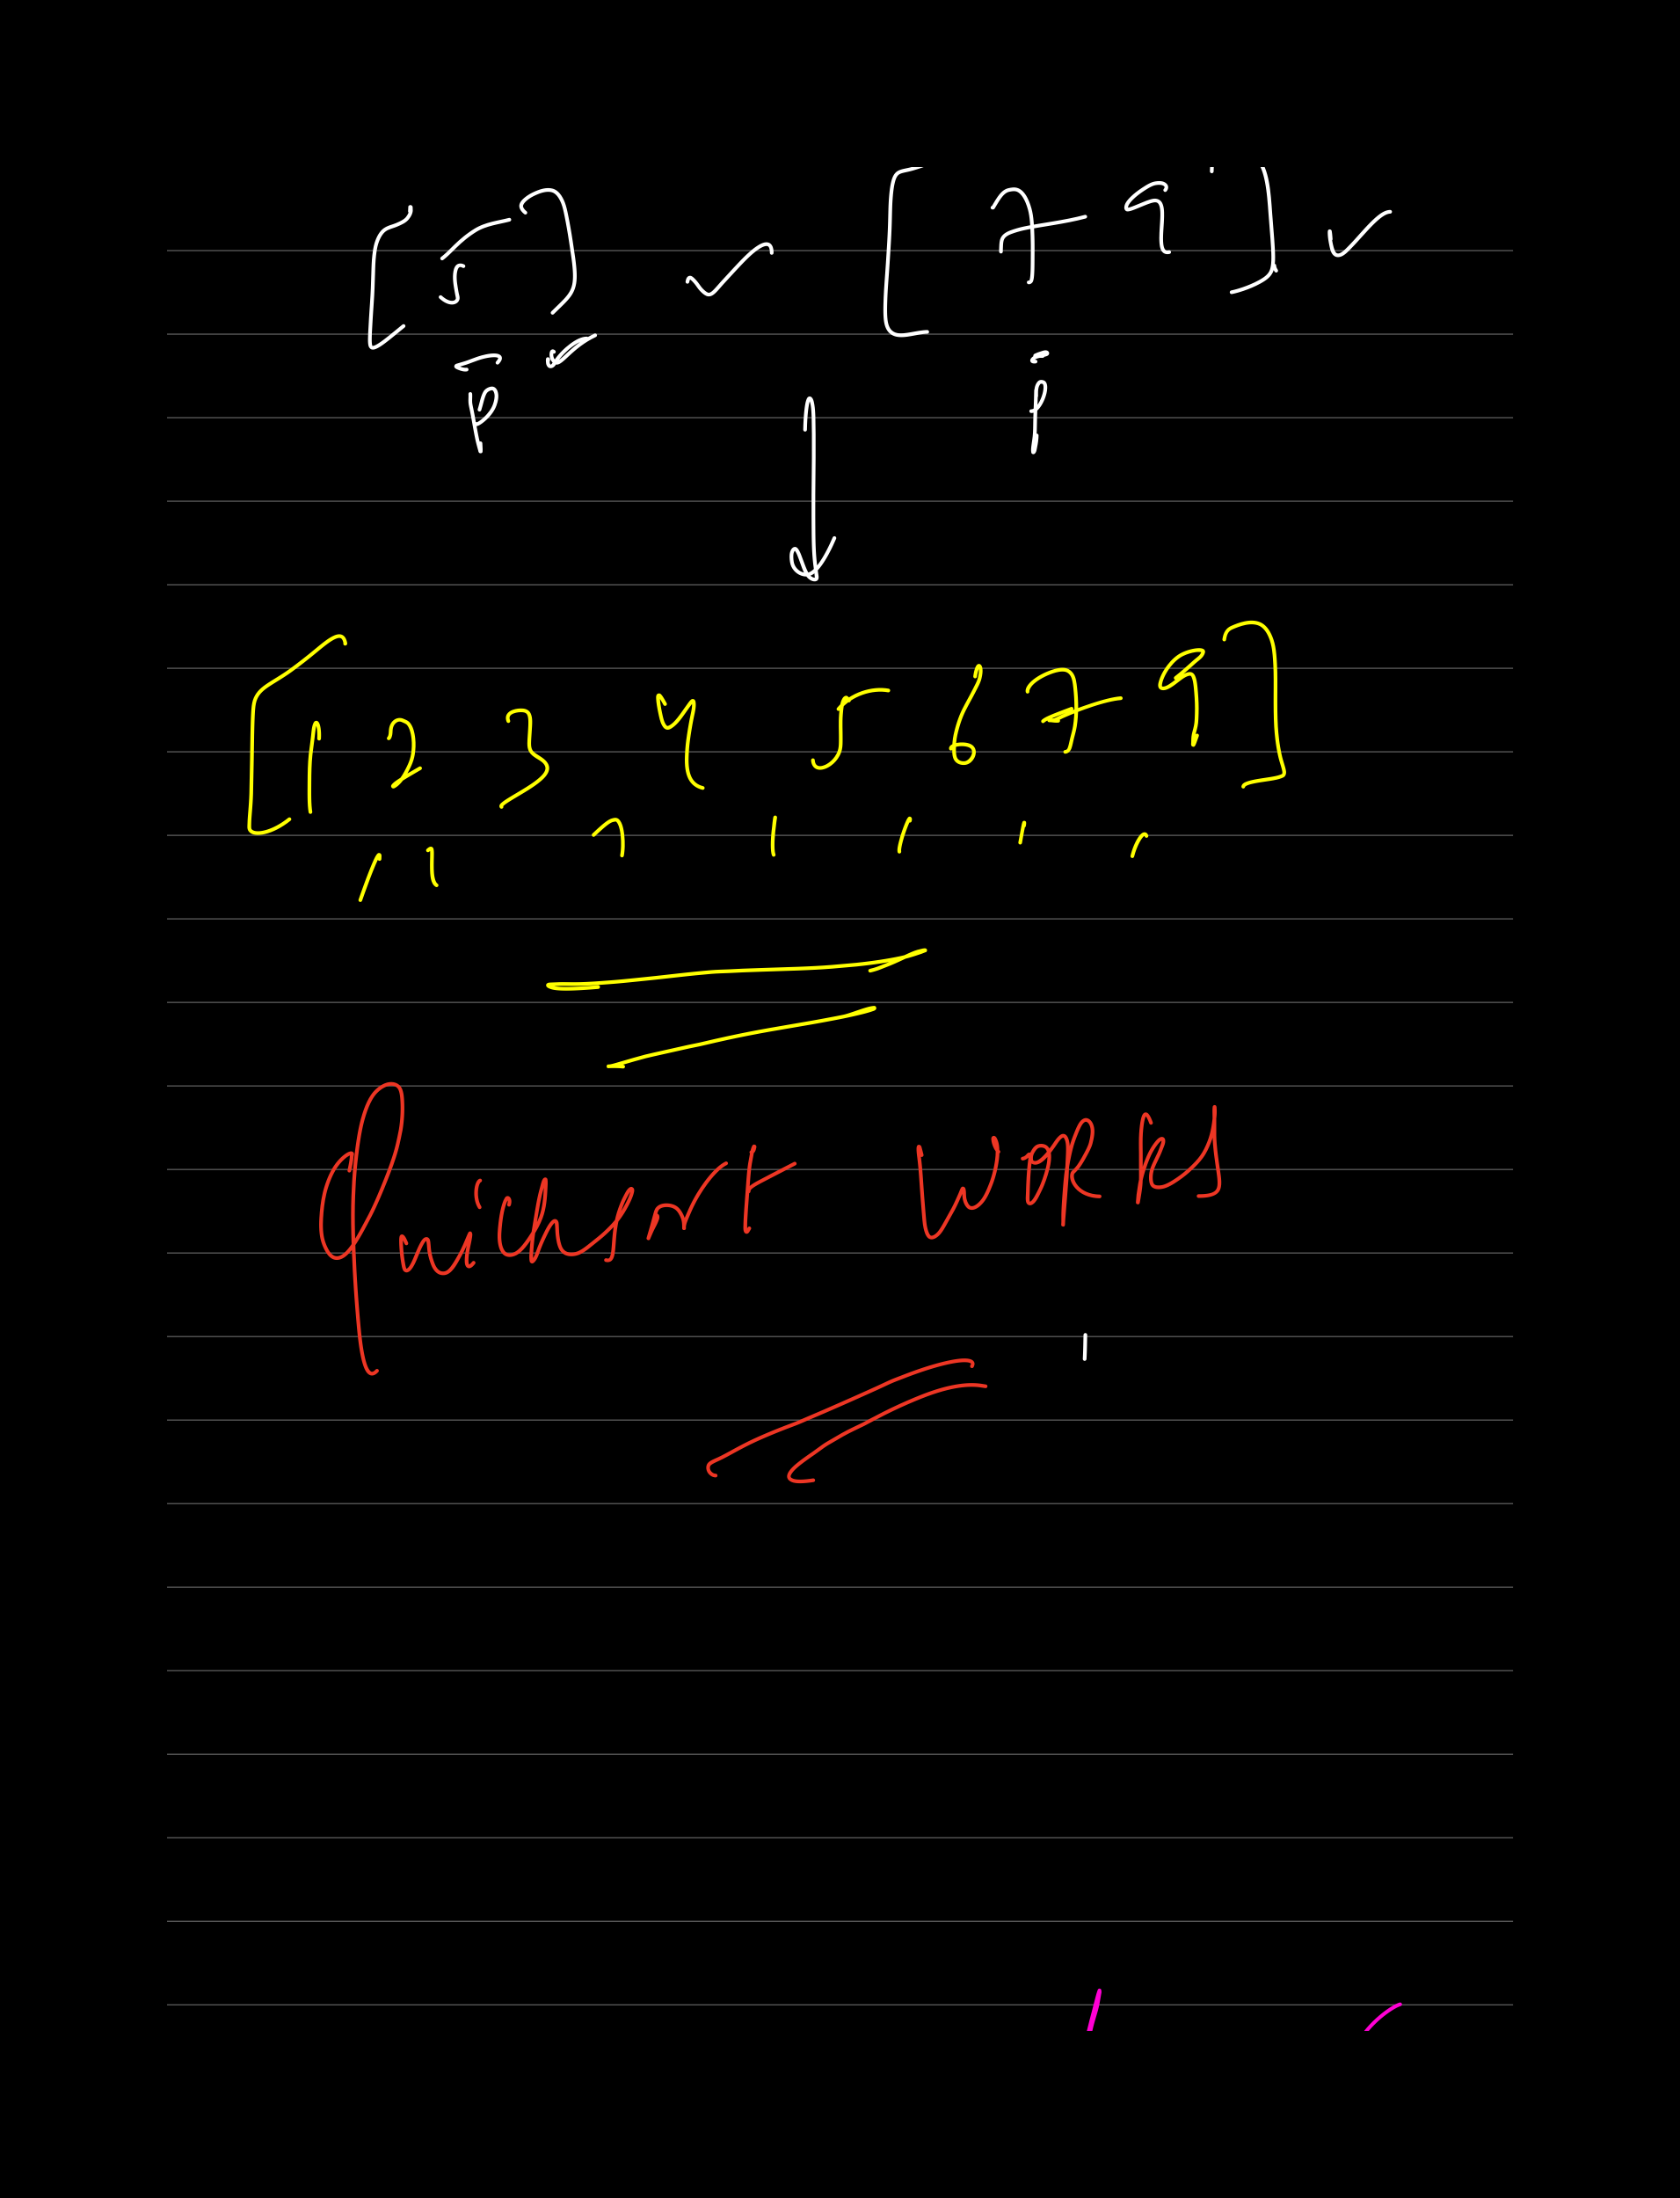 [5] ✓ [7 9] ✓
p p
[1, 2, 3, 4, 5, 6, 7, 9]
Quicksort WORKS